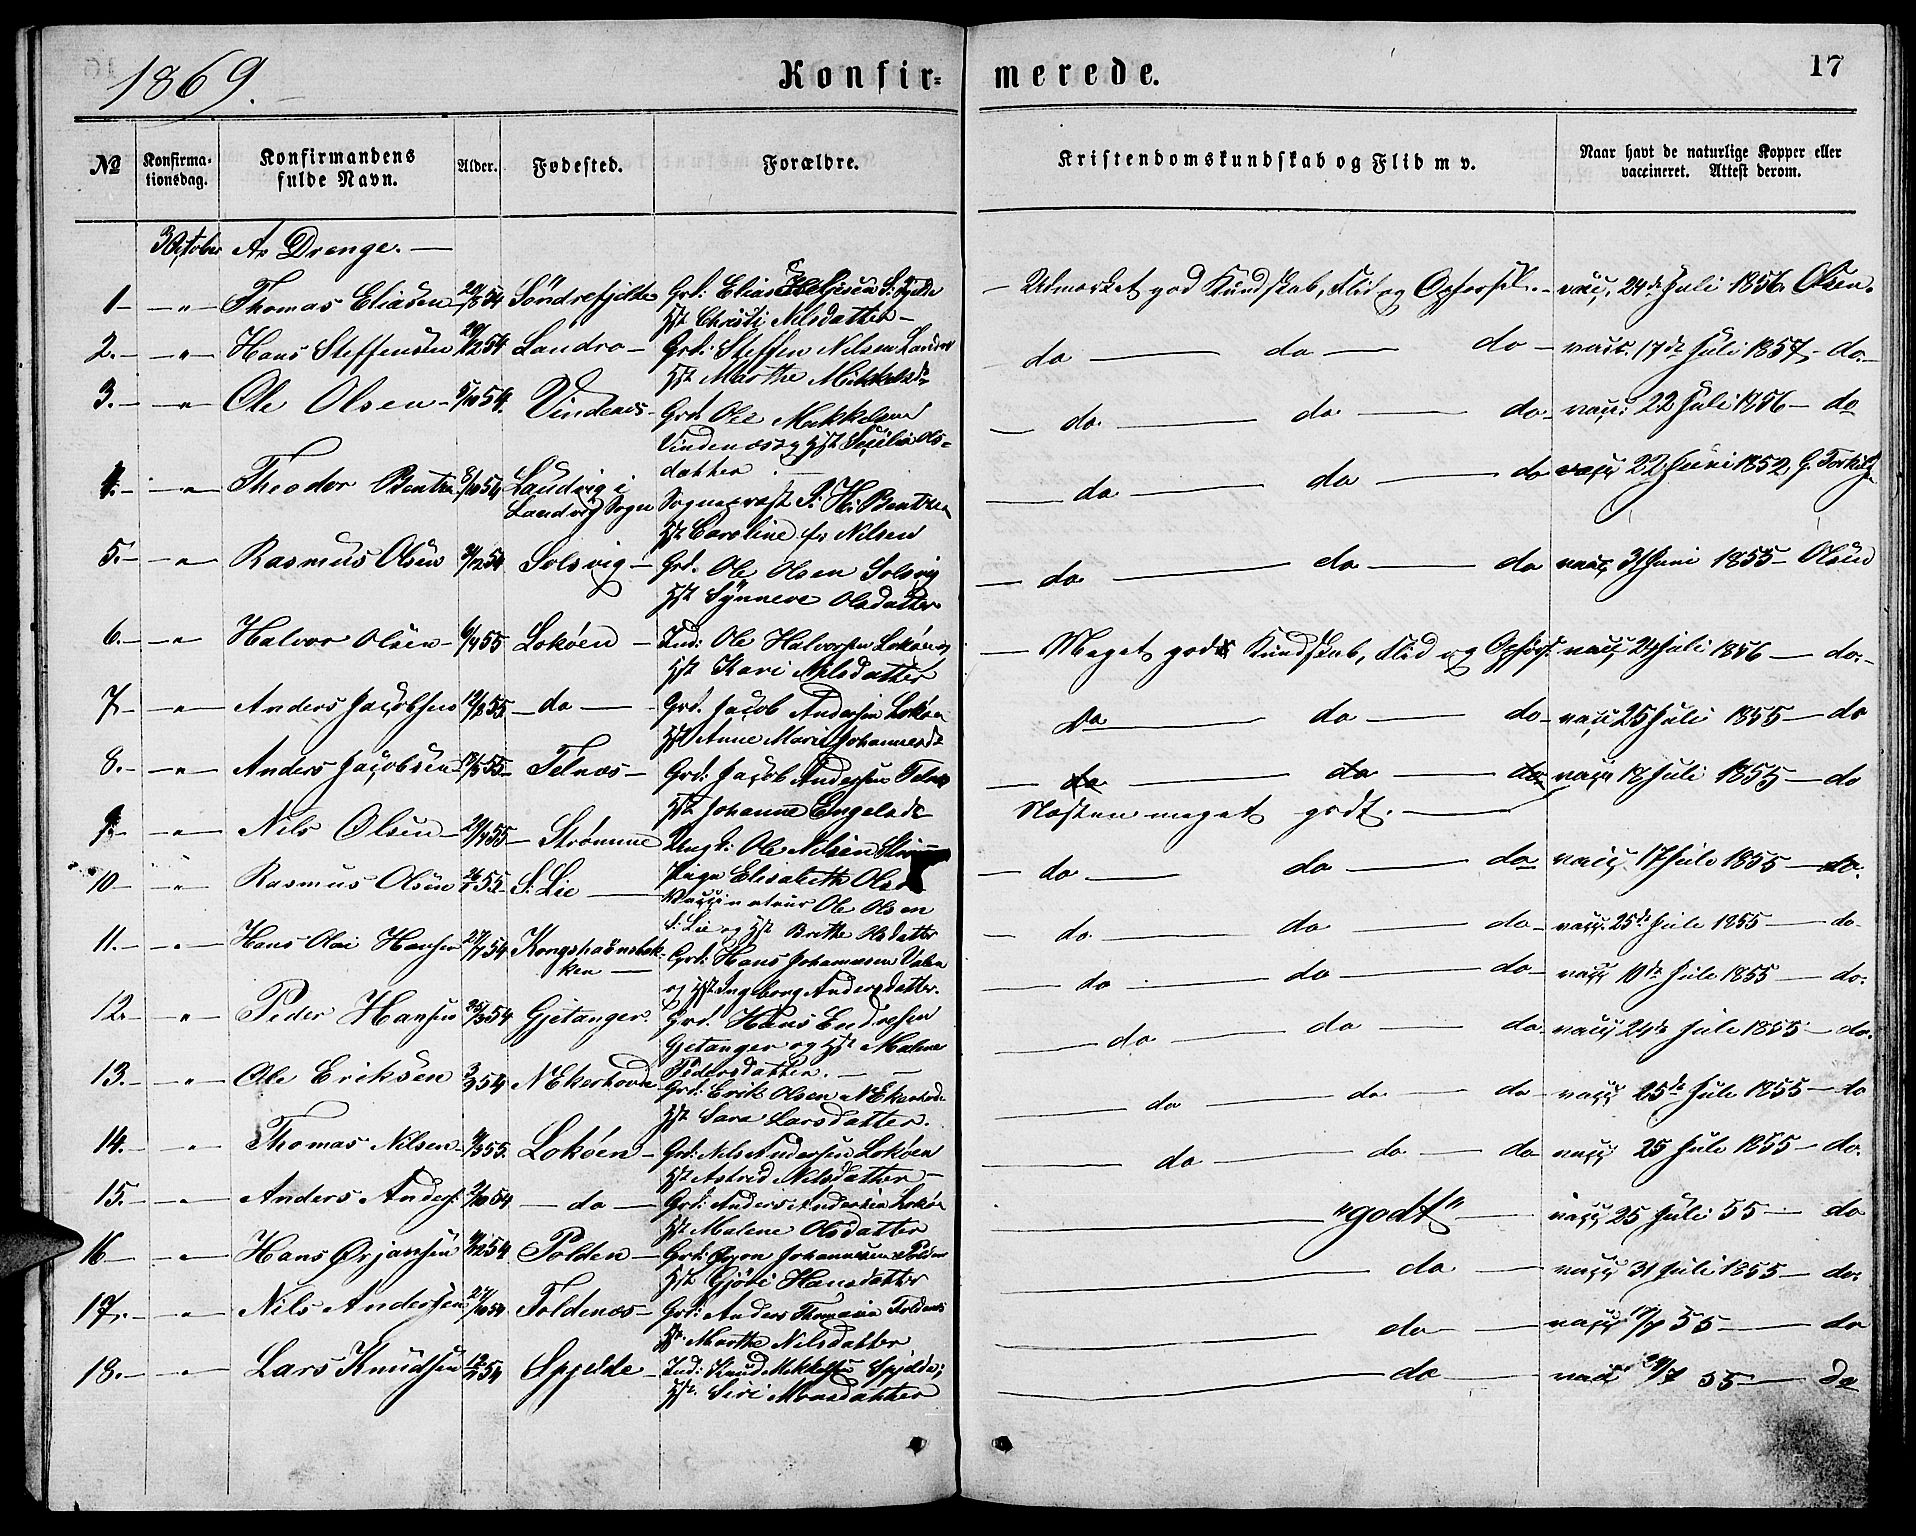 1869.
Konfir=
merede.
17
№
Konfirma-
tionsdag.
Konfirmandens
fulde Navn.
Alder.
Fødested.
Forældre.
Kristendomskundskab og Flid m v.
Naar havt de naturlige Kopper eller
vaccineret. Attest derom.
3 October A. Drenge. —
1 — " — Thomas Eliasen Söndrefjelde Grd: Elias
Hst Christi Nilsdatter —
— Udmærket god Kundskab, Flid og — vacc. 24de Juli 1856 Olsen.
2. — " — Hans Steffensen Landro — Grd: Steffen Nilsen
Hst Marthe
do — do — do — vacc. 17de Juli 1857 — do. —
3. — " — Ole Olsen — 5/10 54. Vindenes — Grd. Ole
Vindenes og Hst Ols=
datter. —
— do. — do — do — vacc: 22 Juli 1856 — do
4. — " — Theodor 8/10 54 Landvig i
Landvig Sogn
Sognepræst J. H. Bentzen
Hst Caroline f. Nilsen
— do — do — do vacc 22 Juni 1852,
5. — " — Rasmus Olsen Solsvig — Grd. Ole Olsen Solsvig
Hst Synneve Olsdatter
— do — do — do vacc 31 Juni 1855 — Olsen
6. — " — Halvor Olsen — 55 Lokøen — Ind: Ole Halvorsen Lokøen og
Hst Kari Nilsdatter
— Meget god Kundskab, Flid og vacc 24 Juli 1856 — do. —
7 — " — Anders Jacobsen 55 — do — Grd. Jacob Andersen Lokøen
Hst Anne Marie
do — do — do — vacc 25 Juli 1855 — do
8. — " — Anders Jacobsen 55 — Telnes — Grd: Jacob Andersen Telnes
Hst Johanne
— do — do — do vacc 18 Juli 1855 — do
Næsten meget godt. —
9. — " — Nils Olsen — 55 — Strømme Ungk: Ole Nilsen
Pige Elisabeth
— do — do — do vacc. 17 Juli 1855 — do.
10 — " — Rasmus Olsen 55. S. Lie — Vaccinateur Ole Olsen
S. Lie og Hst Brithe Olsdatter
— do — do — do vacc. 25de Juli 1855 — do.
11. — " — Hans Olai Hansen 54
ken —
Grd: Hans Johannesen
og Hst Ingeborg Andersdatter.
— do — do — do — vacc 10de Juli 1855 — do.
12. — " — Peder Hansen 54 Gjetanger. Grd. Hans Endresen
Gjetanger og Hst Malene
Pedersdatter. —
— do — do — do vacc 24de Juli 1855 — do.
13. — " — Ole Eriksen 54 N Ekerhovde Grd: Erik Olsen N Ekerhovde
Hst Sara Larsdatter.
— do — do — do vacc 25de Juli 1855 — do
14. — " — Thomas Nilsen 55. Lokøen — Grd: Nils Andersen Lokøen
Hst Astrid Nilsdatter —
— do — do — do vacc 25 Juli 1855 — do.
15. — " — Anders Anders. 54 — do — Grd: Anders Andersen Lokøen
Hst Malene Olsdatter
— "godt" — vacc 25 Juli 55 — do
16 — " — Hans Ørjansen 54 Polden — Grd: Johannesen Polden
Hst Gjöri Hansdatter
— do — vacc 31 Juli 1855 — do.
17. — " — Nils Andersen Toldnes — Grd: Anders Thomasen Toldnes
Hst Marthe Nilsdatter
— do — vacc 55 — do
18. — " — Lars Knudsen 54 Spjelde — Ind: Knud Mikkelsen Spjelde;
Hst. Siri Monsdatter
— do — vacc 55 — do